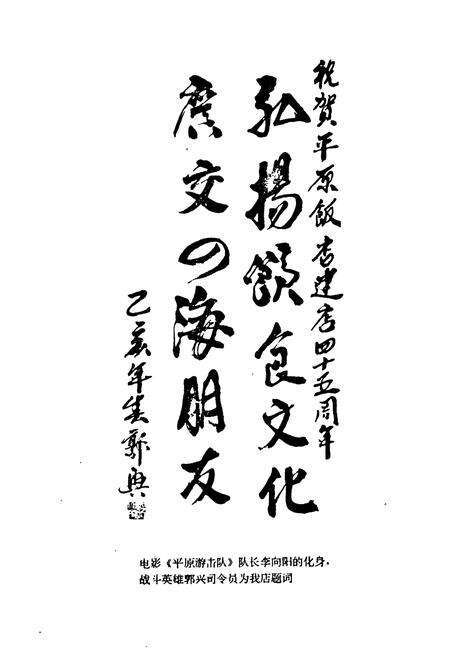 祝賀平原飯店建店四十五周年
弘揚飲食文化
廣交四海朋友
乙亥年郭興
电影《平原游击队》队长李向阳的化身，
战斗英雄郭兴司令员为我店题词